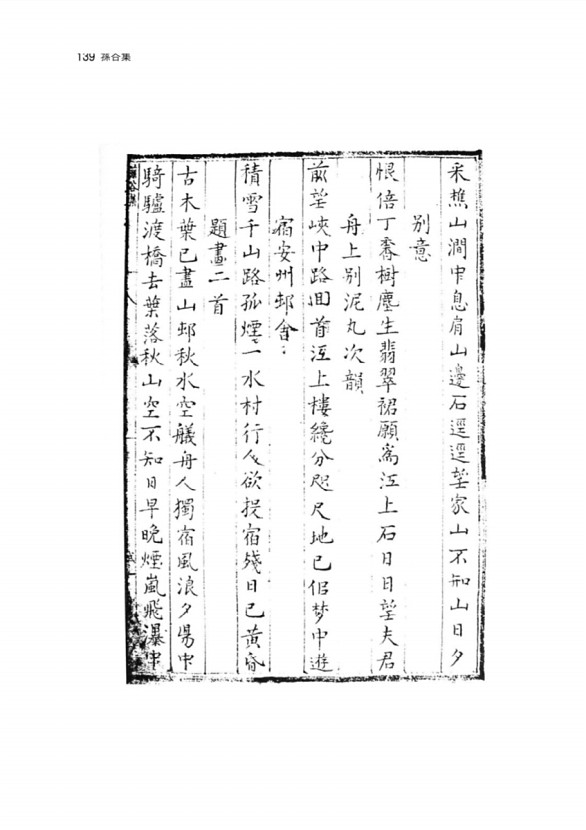 139 孫谷集
采樵山澗中息肩山邊石遥遥望家山不知山日夕
別意
恨倍丁香樹塵生翡翠裙願為江上石日日望夫君
舟上別泥丸次韻
前望峽中路回首江上樓纔分咫尺地已侶梦中遊
宿安州邨舍
積雪千山路孤煙一水村行人欲投宿殘日已黃昏
題畫二首
古木葉已盡山邨秋水空艤舟人獨宿風浪夕陽中
騎驢渡橋去葉落秋山空不知日早晚煙嵐飛瀑中